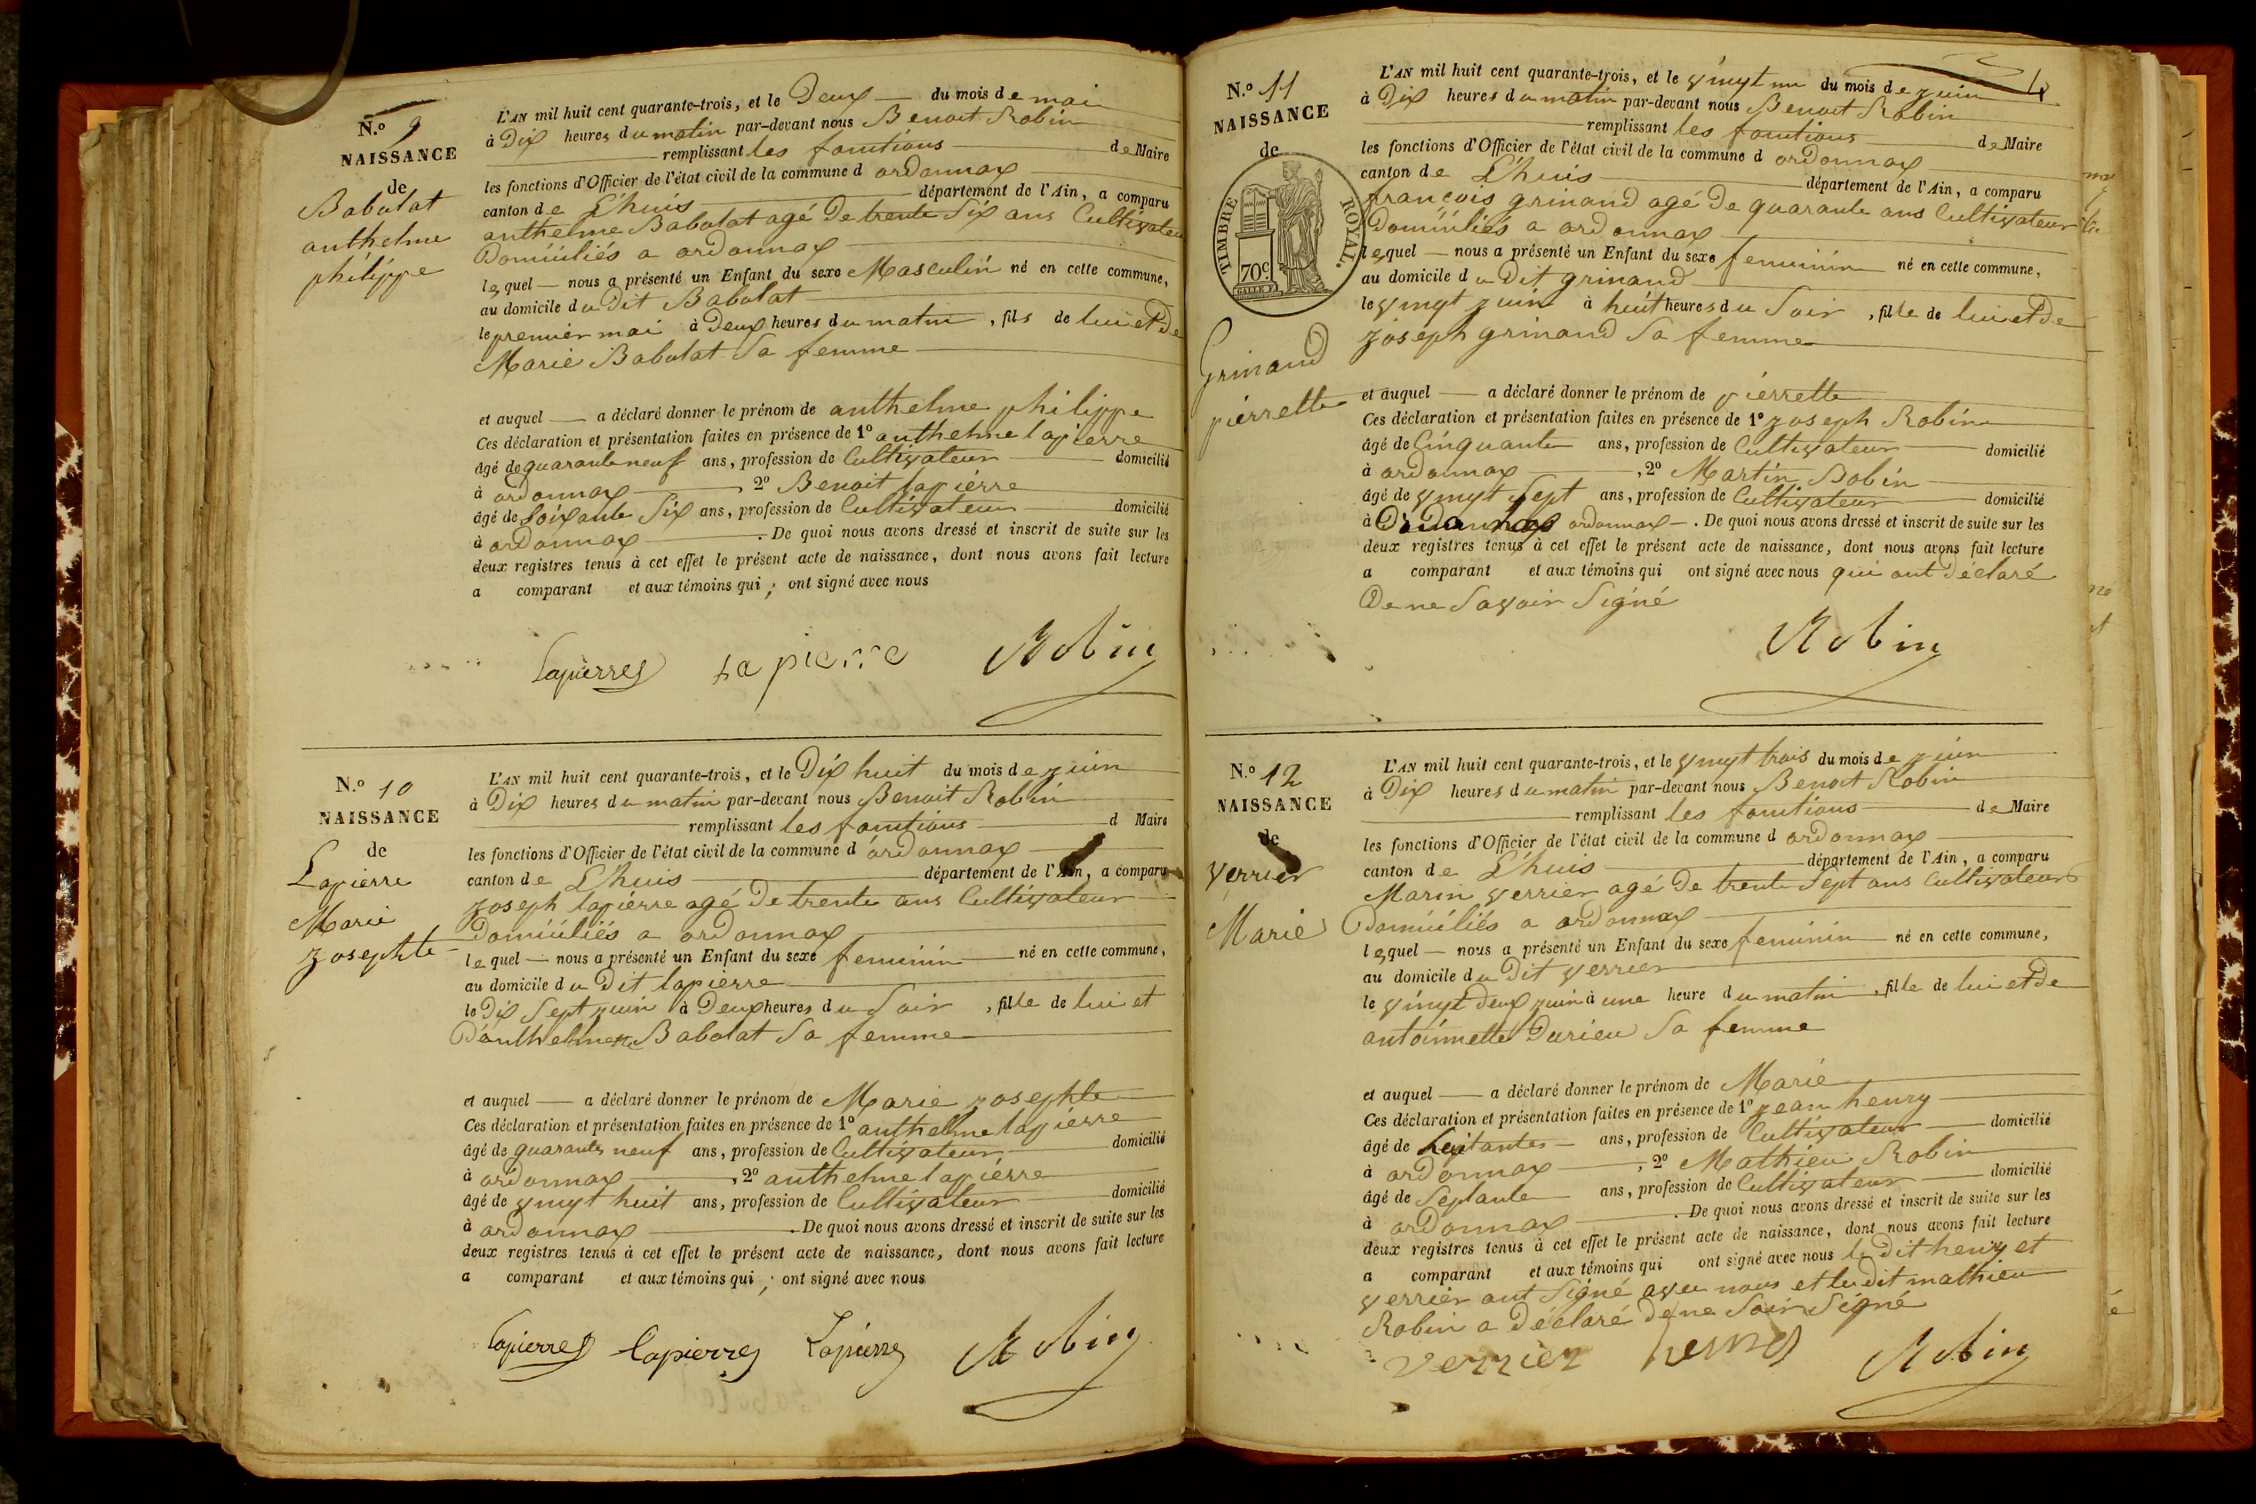 N.º 9
NAISSANCE
de
Babolat
anthelme
philippe
L'AN mil huit cent quarante-trois, et le Deux du mois de mai
à Dix heures du matin par-devant nous Benoit Robin
remplissant les fonctions de Maire
les fonctions d'Officier de l'état civil de la commune d ordonnax
canton de L'huis département de l'Ain, a comparu
anthelme Babolat agé De trente Six ans Cultivateur
Domiciliés a ordonnax
lequel nous a présenté un Enfant du sexe Masculin né en cette commune,
au domicile du Dit Babolat
le premier mai à Deux heures du matin, fils de lui et De
Marie Babolat Sa femme
et auquel a déclaré donner le prénom de anthelme philippe
Ces déclaration et présentation faites en présence de 1º anthelme lapierre
âgé de quarante neuf ans, profession de Cultivateur domicilié
à ordonnax, 2º Benoit lapierre
âgé de Soixante Six ans, profession de Cultivateur domicilié
à ordonnax. De quoi nous avons dressé et inscrit de suite sur les
deux registres tenus à cet effet le présent acte de naissance, dont nous avons fait lecture
a comparant et aux témoins qui ; ont signé avec nous
Lapierre Lapierre Robin
N.º 10
NAISSANCE
de
Lapierre
Marie
Josephte
L'AN mil huit cent quarante-trois, et le Dix huit du mois de juin
à Dix heures du matin par-devant nous Benoit Robin
remplissant les fonctions d Maire
les fonctions d'Officier de l'état civil de la commune d ordonnax
canton de L'huis département de l'Ain, a comparu
joseph lapierre agé De trente ans Cultivateur
Domiciliés a ordonnax
lequel nous a présenté un Enfant du sexe feminin né en cette commune,
au domicile du Dit lapierre
le Dix Sept juin à Deux heures du Soir, fille de lui et
D'anthelmette Babolat Sa femme
et auquel a déclaré donner le prénom de Marie josephte
Ces déclaration et présentation faites en présence de 1º anthelme lapierre
âgé de quarante neuf ans, profession de Cultivateur domicilié
à ordonnax, 2º anthelme lapierre
âgé de vingt huit ans, profession de Cultivateur domicilié
à ordonnax. De quoi nous avons dressé et inscrit de suite sur les
deux registres tenus à cet effet le présent acte de naissance, dont nous avons fait lecture
a comparant et aux témoins qui ; ont signé avec nous
Lapierre Lapierre Lapierre Robin
4
N.º 11
NAISSANCE
de
TIMBRE ROYAL.
70c.
Grinand
pierrette
L'AN mil huit cent quarante-trois, et le vingt un du mois de juin
à Dix heures du matin par-devant nous Benoit Robin
remplissant les fonctions de Maire
les fonctions d'Officier de l'état civil de la commune d ordonnax
canton de L'huis département de l'Ain, a comparu
françois grinand agé De quarante ans Cultivateur
Domiciliés a ordonnax
lequel nous a présenté un Enfant du sexe feminin né en cette commune,
au domicile du Dit grinand
le vingt juin à huit heures du Soir, fille de lui et De
joseph grinand Sa femme
et auquel a déclaré donner le prénom de pierrette
Ces déclaration et présentation faites en présence de 1º joseph Robin
âgé de Cinquante ans, profession de Cultivateur domicilié
à ordonnax, 2º Martin Robin
âgé de vingt Sept ans, profession de Cultivateur domicilié
à ordonnax. De quoi nous avons dressé et inscrit de suite sur les
deux registres tenus à cet effet le présent acte de naissance, dont nous avons fait lecture
a comparant et aux témoins qui ont signé avec nous qui ont Déclaré
De ne Savoir Signé
Robin
N.º 12
NAISSANCE
de
Verrier
Marie
L'AN mil huit cent quarante-trois, et le vingt trois du mois de juin
à Dix heures du matin par-devant nous Benoit Robin
remplissant les fonctions de Maire
les fonctions d'Officier de l'état civil de la commune d ordonnax
canton de L'huis département de l'Ain, a comparu
Marin verrier agé De trente Sept ans Cultivateur
Domiciliés a ordonnax
lequel nous a présenté un Enfant du sexe feminin né en cette commune,
au domicile du Dit verrier
le vingt Deux juin à une heure du matin, fille de lui et De
antoinnette Durieu Sa femme
et auquel a déclaré donner le prénom de Marie
Ces déclaration et présentation faites en présence de 1º jean henry
âgé de ans, profession de Cultivateur domicilié
à ordonnax, 2º Mathieu Robin
âgé de Septante ans, profession de Cultivateur domicilié
à ordonnax. De quoi nous avons dressé et inscrit de suite sur les
deux registres tenus à cet effet le présent acte de naissance, dont nous avons fait lecture
a comparant et aux témoins qui ont signé avec nous le Dit henry et
verrier ont Signé avec nous et le dit mathieu
Robin a Déclaré De ne Savoir Signé
verrier Robin